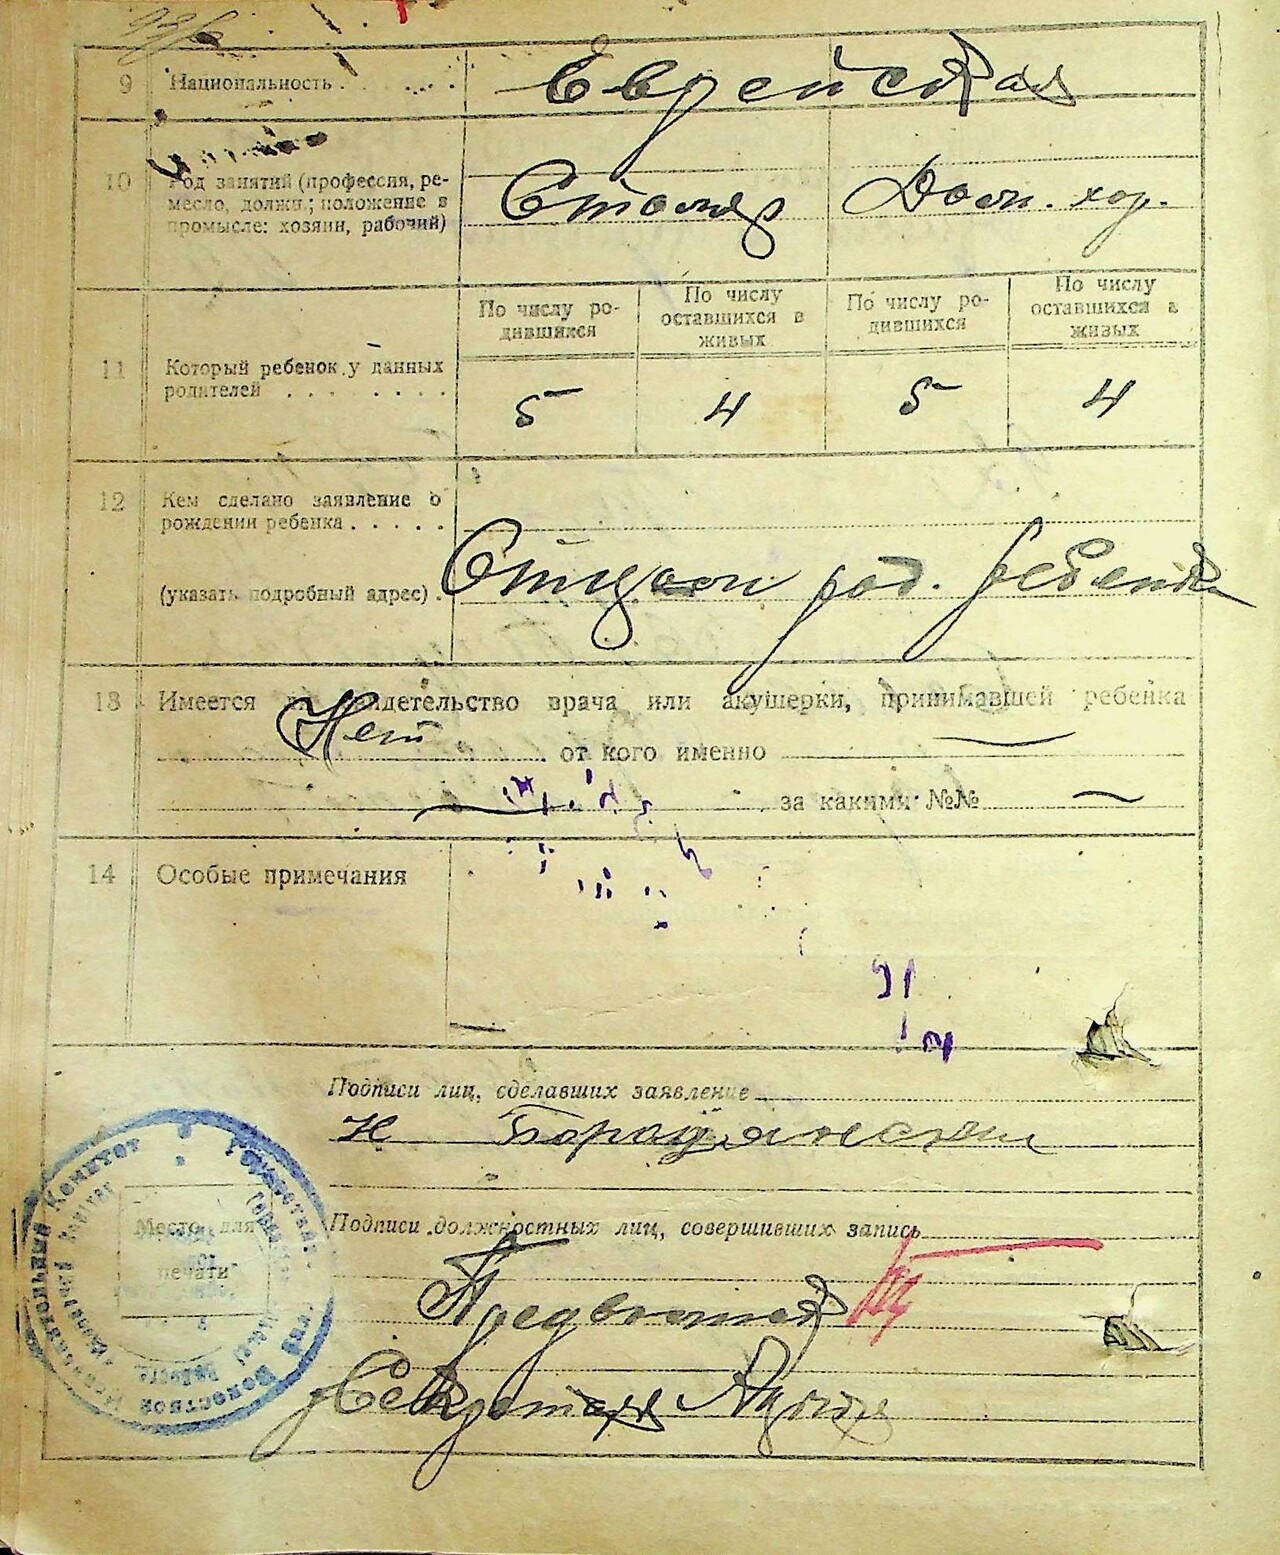 9 Национальность . . . . . . Еврейская
10 Род занятий (профессия, ре-
месло, должн.; положение в
промысле: хозяин, рабочий)
Столяр Дом. хоз.
11 Который ребенок у данных
родителей . . . . . . . .
По числу ро-
дившихся
По числу
оставшихся в
живых
По числу ро-
дившихся
По числу
оставшихся в
живых
5 4 5 4
12 Кем сделано заявление о
рождении ребенка . . . . .
(указать подробный адрес) .
Отцом род. ребенка
13 Имеется ли свидетельство врача или акушерки, принимавшей ребенка
Нет от кого именно —
— за какими №№ —
14 Особые примечания
—
Подписи лиц, сделавших заявление
Н Бородянский
Подписи должностных лиц, совершивших запись
Место для
печати
Секретарь